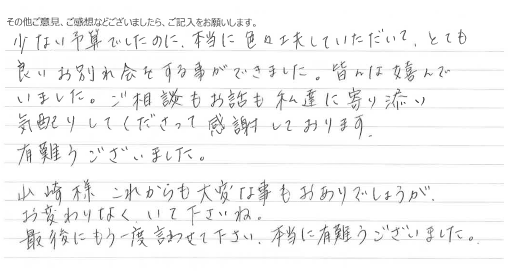 その他ご意見、ご感想などございましたら、ご記入をお願いします。
少ない予算でしたのに、本当に色々工夫していただいて、とても
良いお別れ会をする事ができました。皆んな喜んで
いました。ご相談もお話も私達に寄り添い
気配りしてくださって感謝しております。
有難うございました。
山崎様 これからも大変な事もおありでしょうが、
お変わりなく、いて下さいね。
最後にもう一度言わせて下さい、本当に有難うございました。